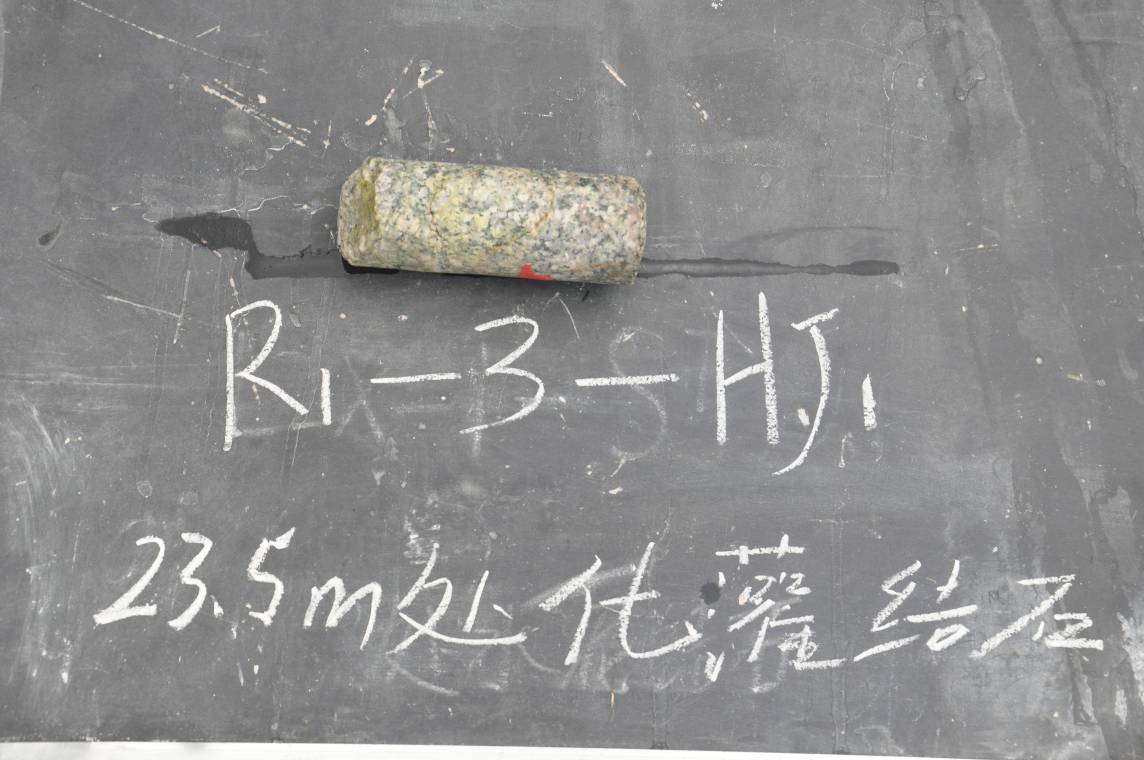 R1-3-HJ1
23.5m处化灌结石